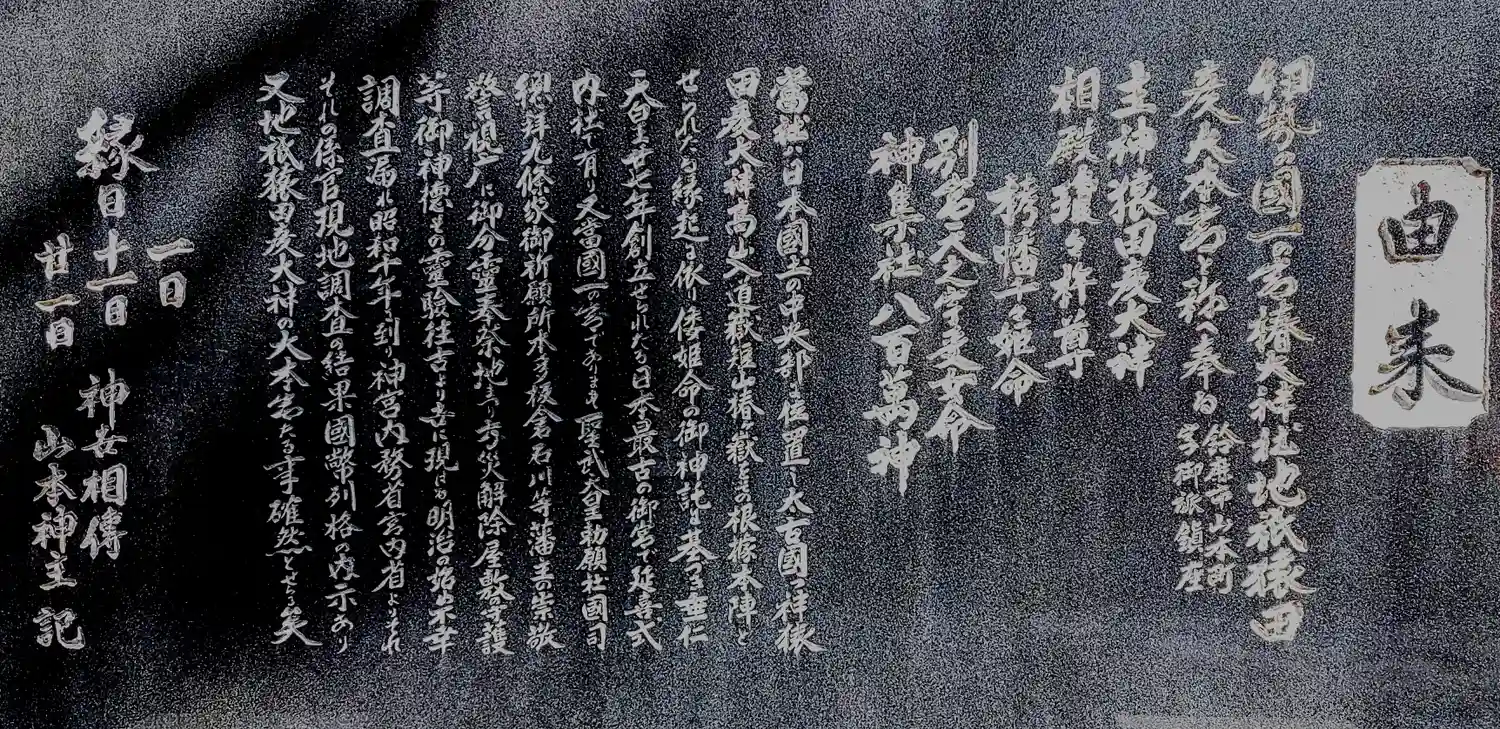 由来
伊勢の國一の宮椿大神社地祇猿田
彦大本宮と称へ奉る
鈴鹿市山本町
字御旅鎮座
主神猿田彦大神
相殿瓊々杵尊
栲幡千々姫命
別宮天之宇受女命
神集社八百萬神
當社は日本國土の中央部に位置し太古國つ神猿
田彦大神高山入道嶽短山椿ヶ嶽をその根據本陣と
せられたる縁起に依り倭姫命の御神託に基づき垂仁
天皇廿七年創立せられたる日本最古の御宮で延喜式
内社で有り又當國一の宮であります聖武天皇勅願社國司
總拜九條家御祈願所水多板倉石川等藩主の崇敬
警視庁に御分靈奉祭地より災解除屋敷守護
等御神徳その靈驗往古より世に現はる明治の始め不幸
調査漏れ昭和十年に到り神宮内務省宮内省よりそれ
それの係官現地調査の結果國幣列格の内示あり
又地祇猿田彦大神の大本宮たる事確然とせらる矣
一日
縁日十一日
廿一日
神女相傳
山本神主記